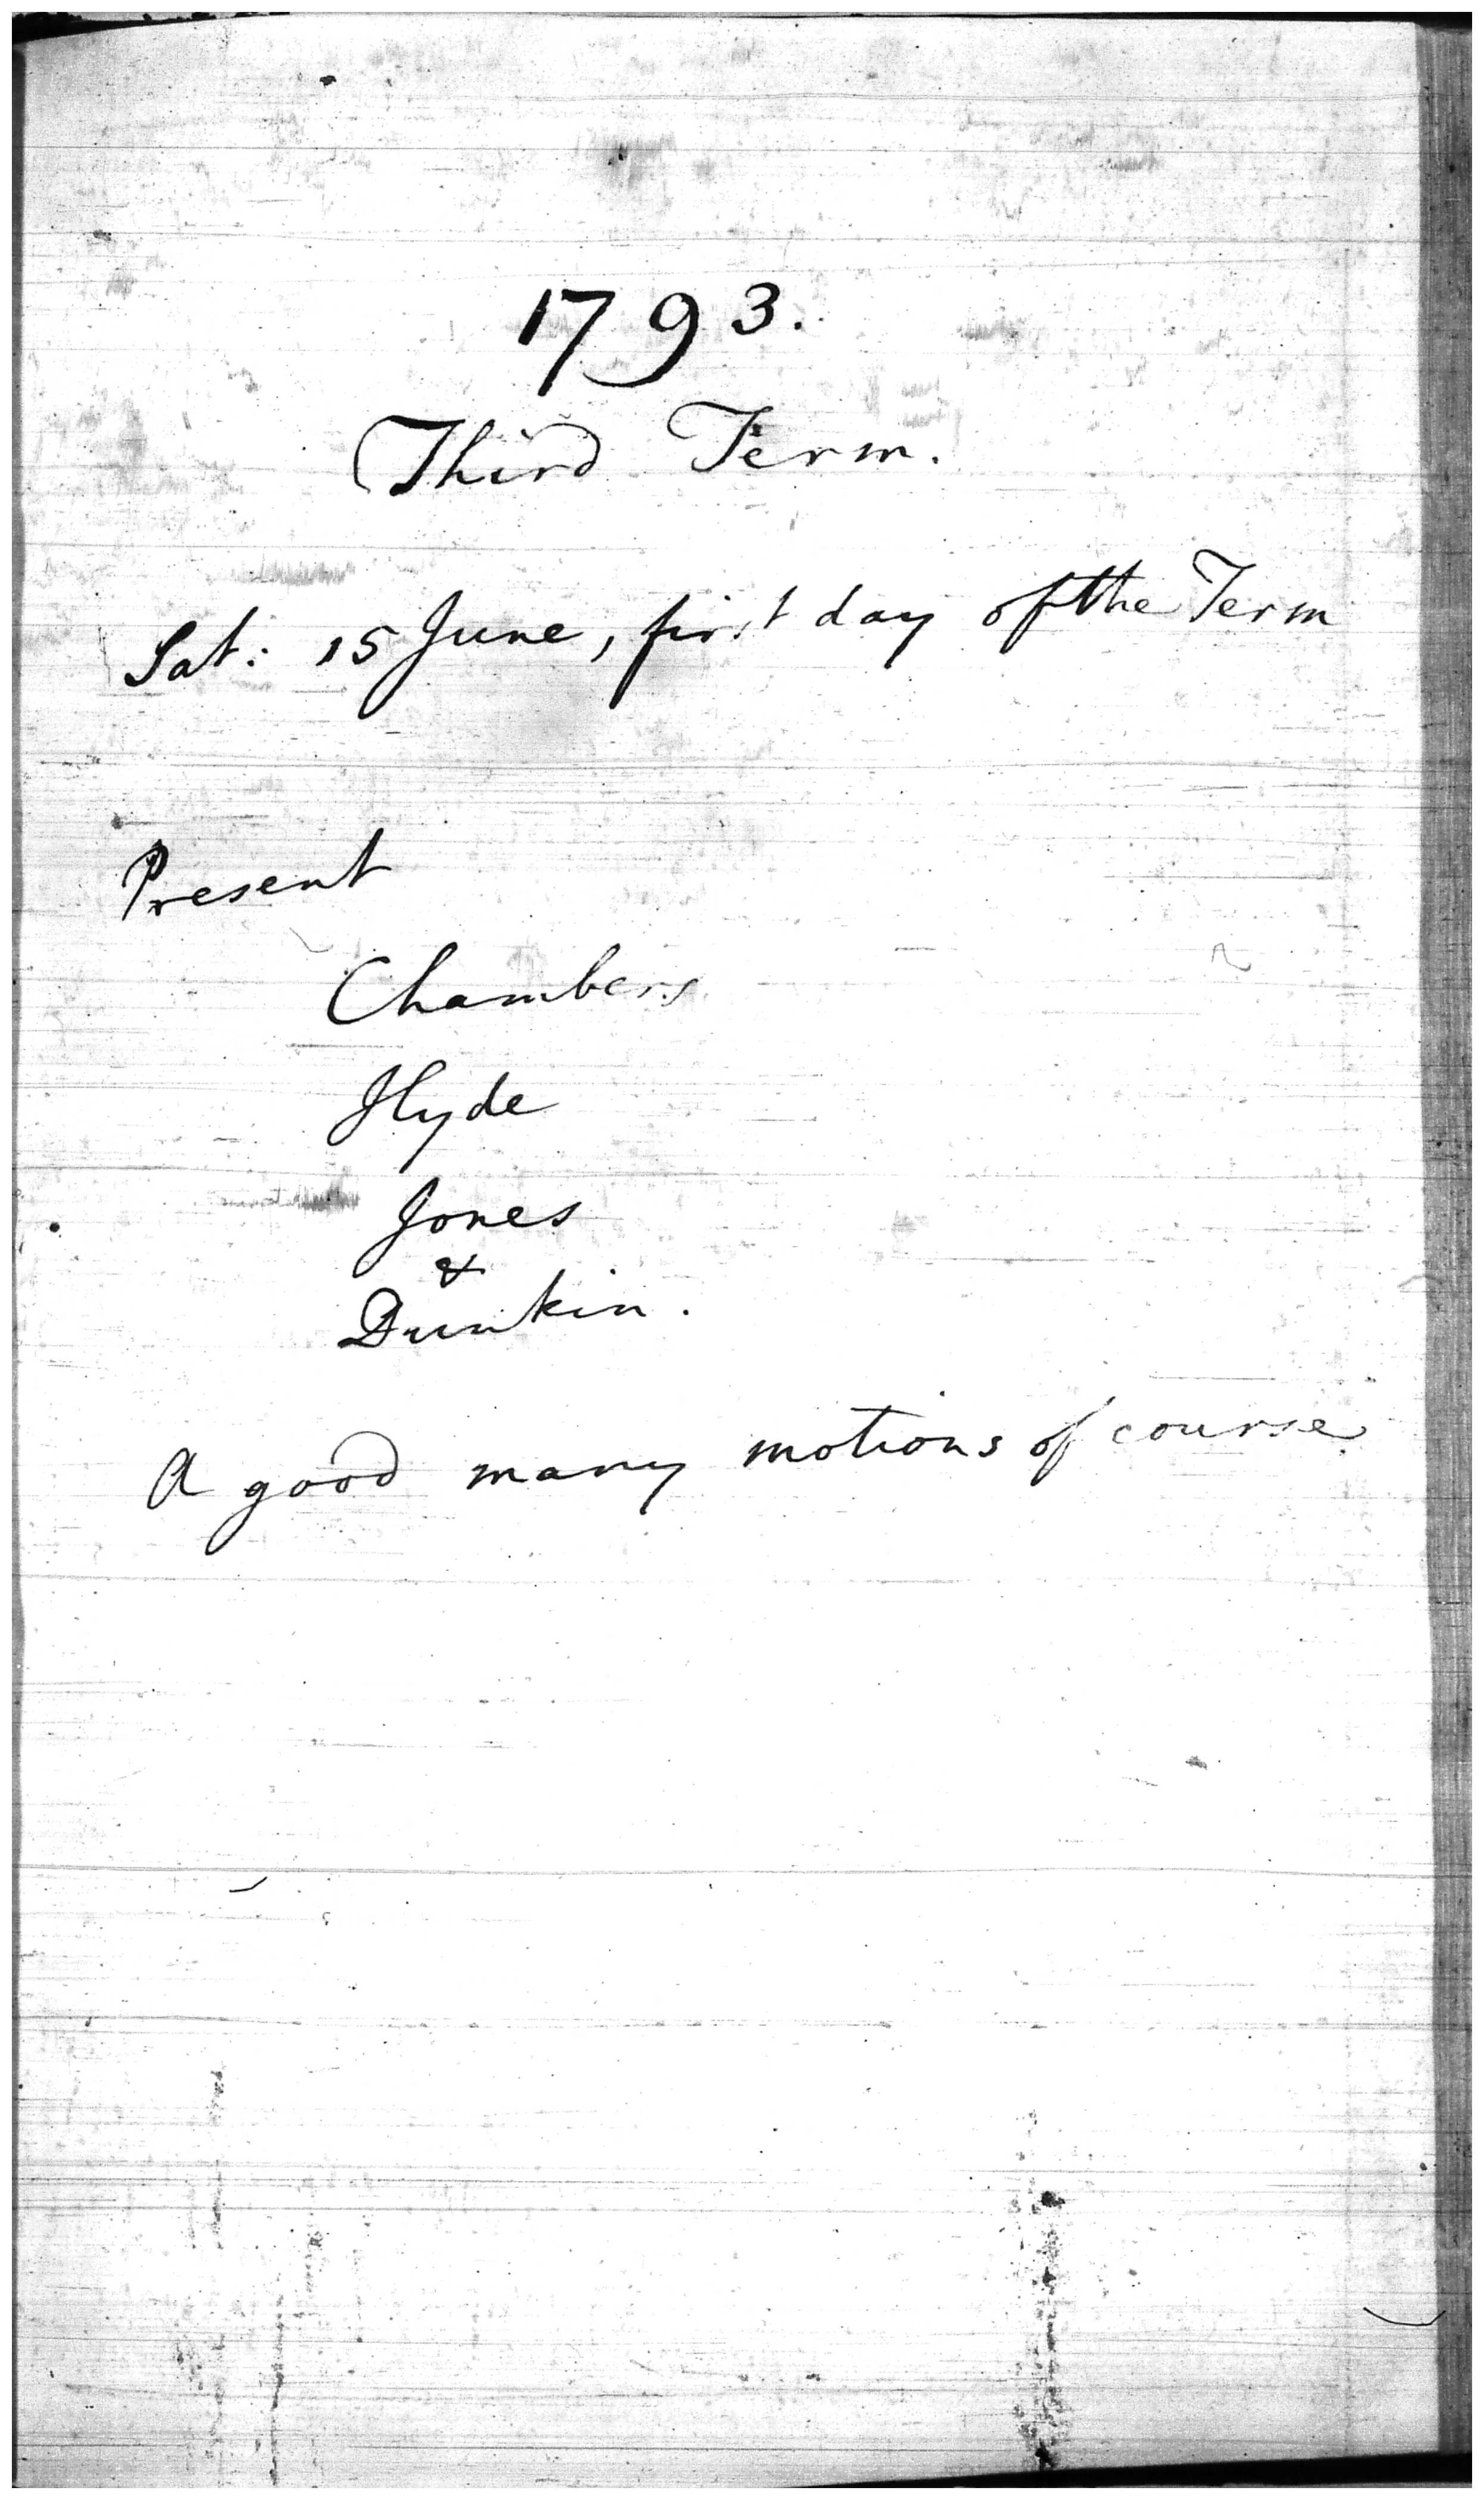 1793.
Third Term.
Sat: 15 June, first day of the Term
Present
Chambers
Hyde
Jones
&
Dunkin.
A good many motions of course.